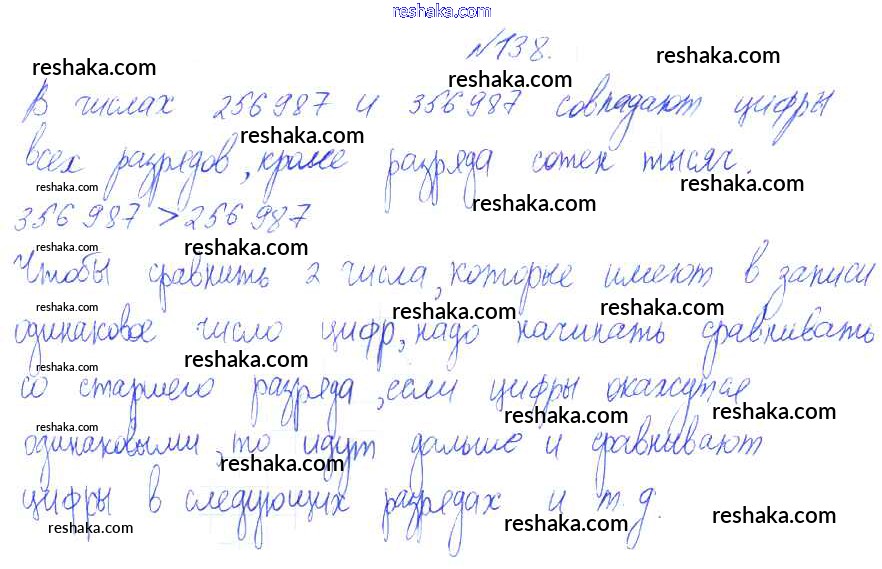 reshaka.com
№138.
reshaka.com reshaka.com reshaka.com
В числах 256987 и 356987 совпадают цифры
reshaka.com
всех разрядов, кроме разряда сотен тысяч.
reshaka.com reshaka.com reshaka.com
356 987 > 256 987
reshaka.com reshaka.com
Чтобы сравнить 2 числа, которые имеют в записи
reshaka.com reshaka.com reshaka.com
одинаковое число цифр, надо начинать сравнивать
reshaka.com reshaka.com
со старшего разряда, если цифры окажутся
reshaka.com reshaka.com reshaka.com
одинаковыми, то идут дальше и сравнивают
reshaka.com
цифры в следующих разрядах и т.д.
reshaka.com reshaka.com reshaka.com